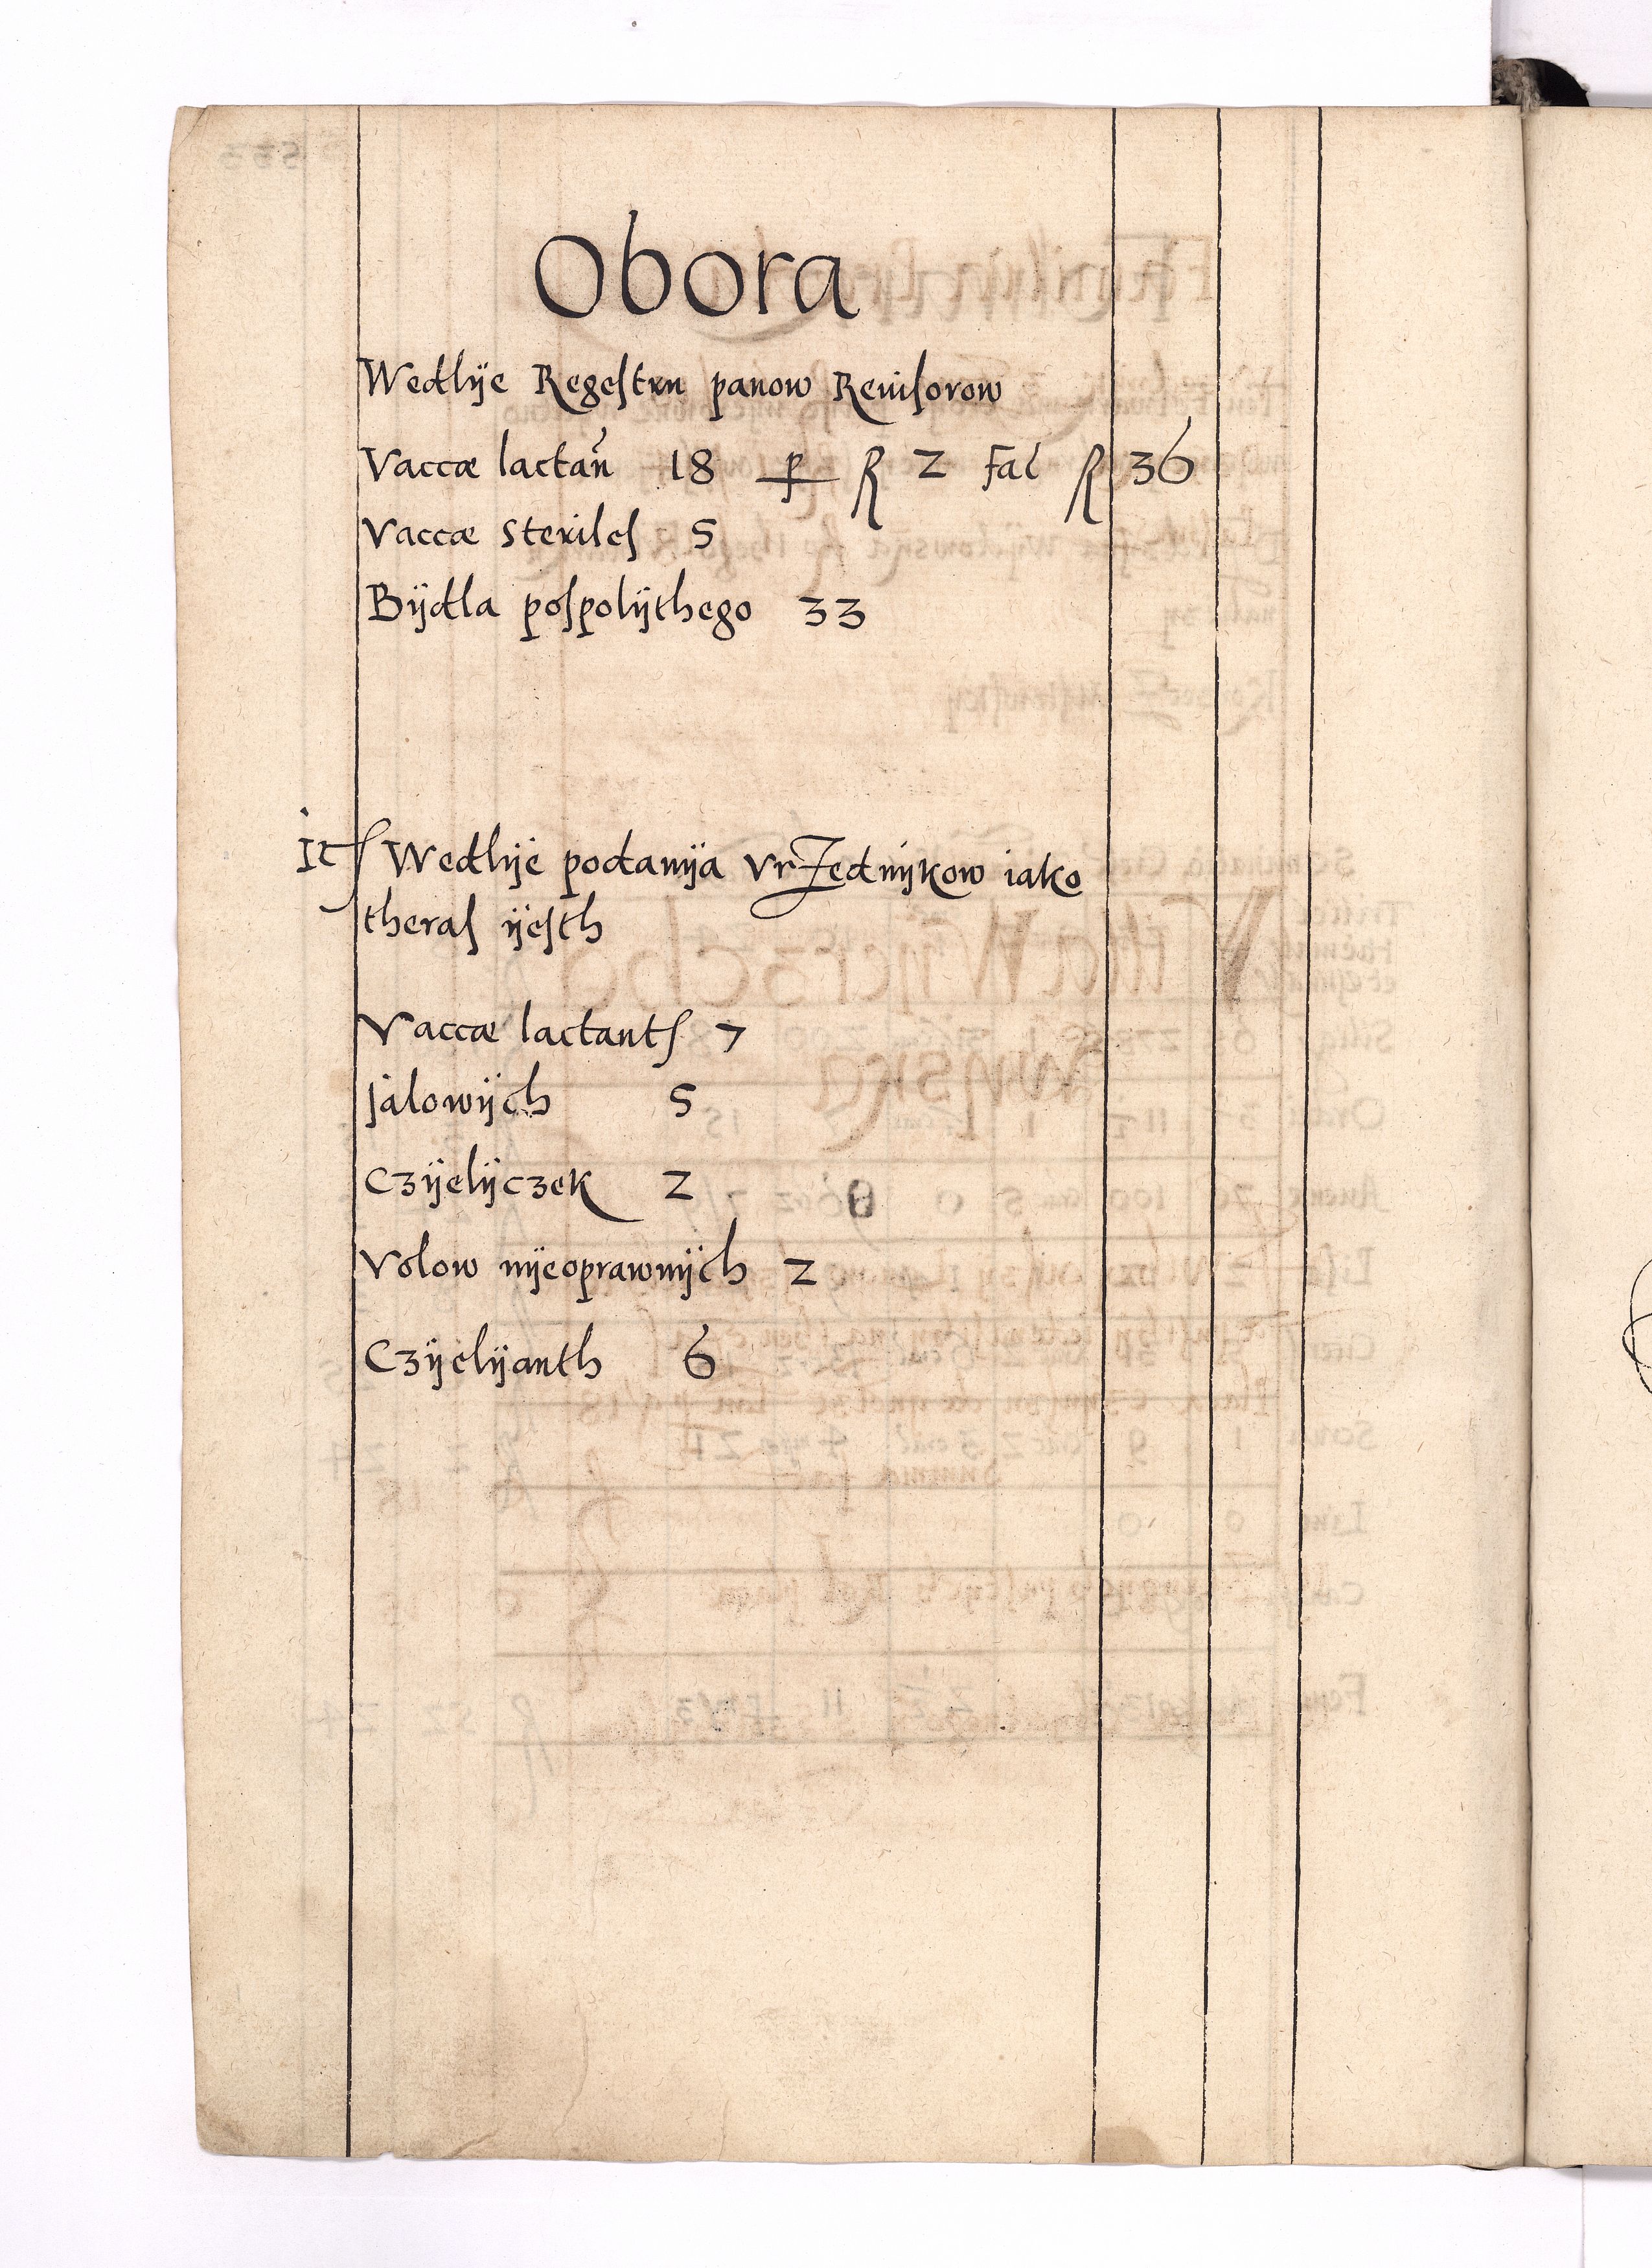 Obora
Wedlÿe Regestru panow Reuisorow
Vaccæ lactan̄ 18 ꝑ 2 fac 36
Vaccæ Steriles 5
Bÿdla pospolÿthego 33
Wedlÿe podanÿa Vrzednÿkow iako
theras ÿesth
Vaccæ lactants 7
Jalowÿch 5
Czÿelÿczek 2
Volow nÿeoprawnÿch 2
Czÿelÿanth 6